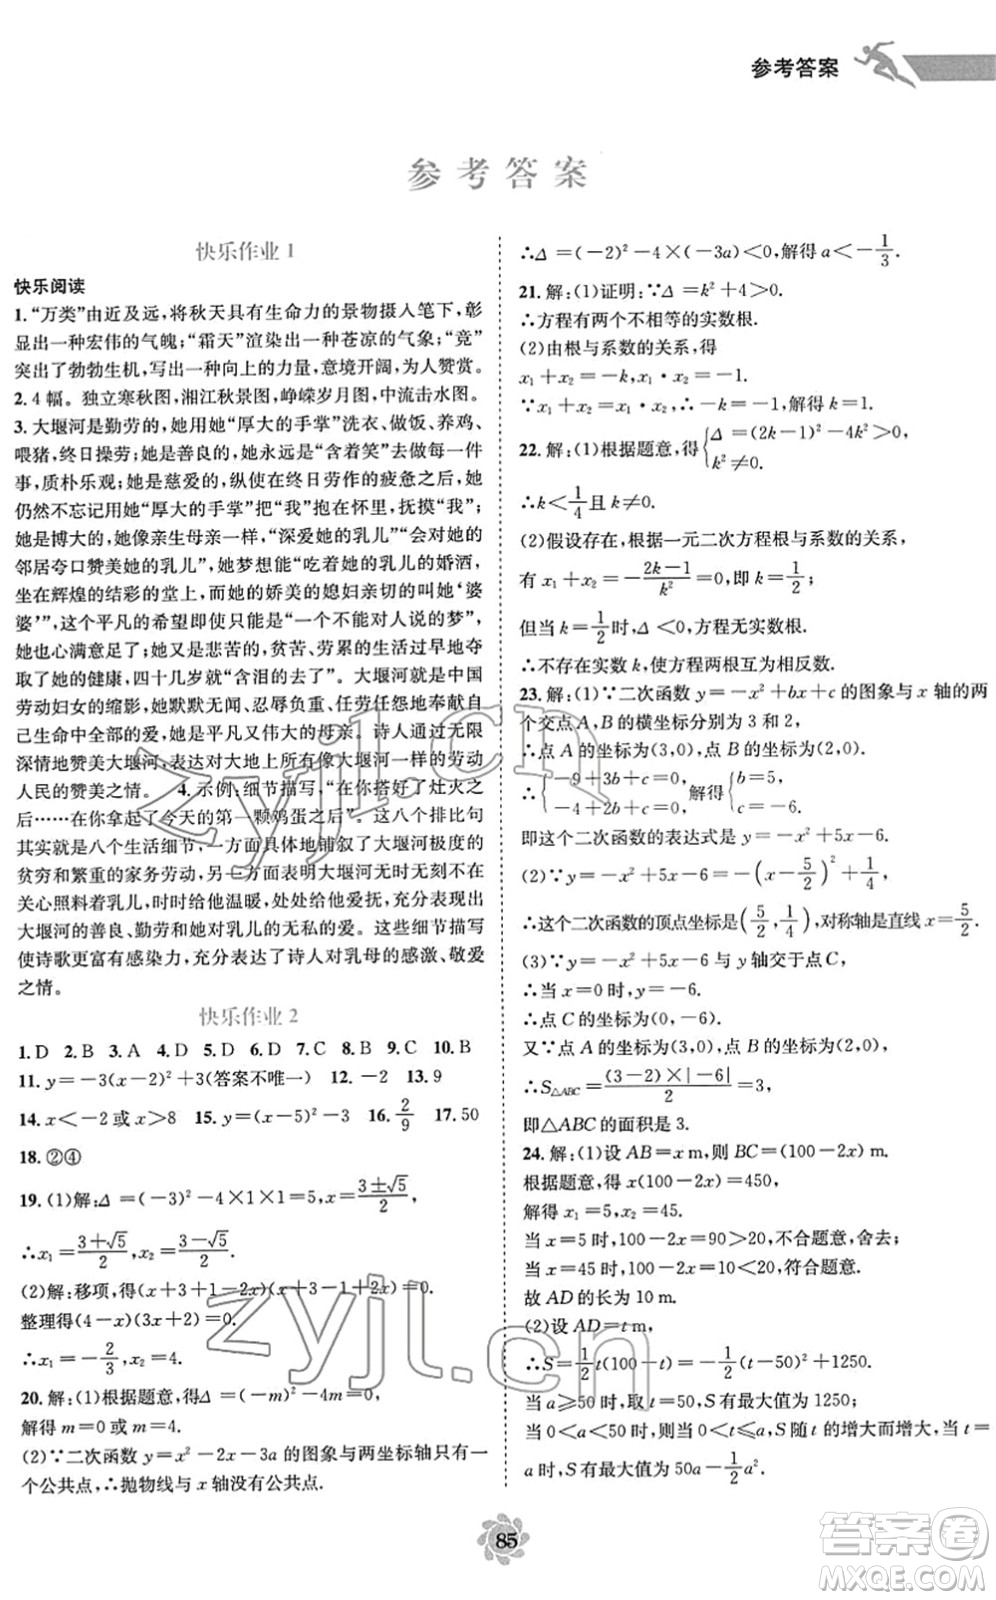 参考答案
参考答案
快乐作业 1
快乐阅读
1.“万类”由近及远，将秋天具有生命力的景物摄人笔下，彰
显出一种宏伟的气魄；“霜天”渲染出一种苍凉的气象；“竞”
突出了勃勃生机，写出一种向上的力量，意境开阔，为人赞赏。
2.4 幅。独立寒秋图，湘江秋景图，峥嵘岁月图，中流击水图。
3.大堰河是勤劳的，她用她“厚大的手掌”洗衣、做饭、养鸡、
喂猪，终日操劳；她是善良的，她永远是“含着笑”做着每一件
事，质朴乐观；她是慈爱的，纵使在终日劳作的疲惫之后，她
仍然不忘用她“厚大的手掌”把“我”抱在怀里，抚摸“我”；
她是博大的，她像亲生母亲一样，“深爱她的乳儿”“会对她的
邻居夸口赞美她的乳儿”，她甚至幻想着“吃着她的乳儿的婚酒，
坐在辉煌的结彩的堂上，而她的娇美的媳妇亲切的叫她‘婆
婆’”，这个平凡的希望却只能是“一个不能对人说的梦”，
她也有痛苦，她是悲苦的，贫苦、劳累的生活过早地夺
取了她的健康，四十几岁就“含泪的去了”。大堰河是中国
劳动妇女的缩影，她默默无闻、忍辱负重、任劳任怨，
自己生命中全部的爱，她是平凡而伟大的母亲。诗人以无限
深情地赞美大堰河，
人民的赞美之情。 4.示例：细节描写，“在你搭好了灶火之
后……在你拿起了今天的第一颗鸡蛋之后”，这八个排比句
是生活细节，一方面具体地铺叙了大堰河极度的
贫穷和繁重的家务劳动，另一方面表达了她无时无刻不在
关心照料着乳儿，时时给他温暖，处处给他爱抚，充分表现出
大堰河的善良、勤劳和她对乳儿的慈爱。这些细节描写
使诗歌更富有感染力，充分表达了诗人对乳母的感激、敬爱
之情。
快乐作业 2
1.D 2.B 3.A 4.D 5.D 6.D 7.C 8.B 9.C 10.B
11. y=-3(x-2)²+3(答案不唯一) 12.-2 13.9
14. x<-2 或 x>8 15. y=(x-5)²-3 16. 2/9 17.50
18. ②④
19. (1)解：Δ=(-3)²-4×1×1=5, x=(3±√5)/2,
∴x₁=(3+√5)/2, x₂=(3-√5)/2.
(2)解：移项，得(x+3+1-2x)(x+3-1+2x)=0.
整理得(4-x)(3x+2)=0.
∴x₁=-2/3, x₂=4.
20. 解：(1)根据题意，得Δ=(-m)²-4m=0,
解得 m=0 或 m=4.
(2)∵二次函数 y=x²-2x-3a 的图象与两坐标轴只有一
个公共点，∴抛物线与 x 轴没有公共点.
∴Δ=(-2)²-4×(-3a)<0, 解得 a<-1/3.
21. 解：(1)证明：∵Δ=k²+4>0.
∴方程有两个不相等的实数根.
(2)由根与系数的关系，得
x₁+x₂=-k, x₁·x₂=-1.
∵x₁+x₂=x₁·x₂, ∴-k=-1, 解得 k=1.
22. 解：(1)根据题意，得{Δ=(2k-1)²-4k²>0, k²≠0.
∴k<1/4 且 k≠0.
(2)假设存在，根据一元二次方程根与系数的关系，
有 x₁+x₂=-(2k-1)/k²=0, 即 k=1/2;
但当 k=1/2 时，Δ<0, 方程无实数根.
∴不存在实数 k, 使方程两根互为相反数.
23. 解：(1)∵二次函数 y=-x²+bx+c 的图象与 x 轴的两
个交点 A、B 的横坐标分别为 3 和 2,
∴点 A 的坐标为(3,0), 点 B 的坐标为(2,0).
∴{-9+3b+c=0, -4+2b+c=0, 解得{b=5, c=-6.
即这个二次函数的表达式是 y=-x²+5x-6.
(2)∵y=-x²+5x-6=-(x-5/2)²+1/4,
∴这个二次函数的顶点坐标是(5/2,1/4), 对称轴是直线 x=5/2.
(3)∵y=-x²+5x-6 与 y 轴交于点 C,
∴当 x=0 时, y=-6.
∴点 C 的坐标为(0,-6).
又∵点 A 的坐标为(3,0), 点 B 的坐标为(2,0),
∴S△ABC=(3-2)×|-6|/2=3,
即△ABC 的面积是 3.
24. 解：(1)设 AB=x m, 则 BC=(100-2x) m.
根据题意，得 x(100-2x)=450,
解得 x₁=5, x₂=45.
当 x=5 时, 100-2x=90>20, 不合题意, 舍去;
当 x=45 时, 100-2x=10<20, 符合题意.
故 AD 的长为 10 m.
(2)设 AD=t m,
∴S=1/2t(100-t)=-1/2(t-50)²+1250.
当 a≥50 时, 取 t=50, S 有最大值为 1250;
当 0<a<50 时, 则 0<t≤a, S 随 t 的增大而增大, 当 t=
a 时, S 有最大值为 50a-1/2a².
85
zyjl.cn
zyjl.cn
答案卷
MXQE.COM